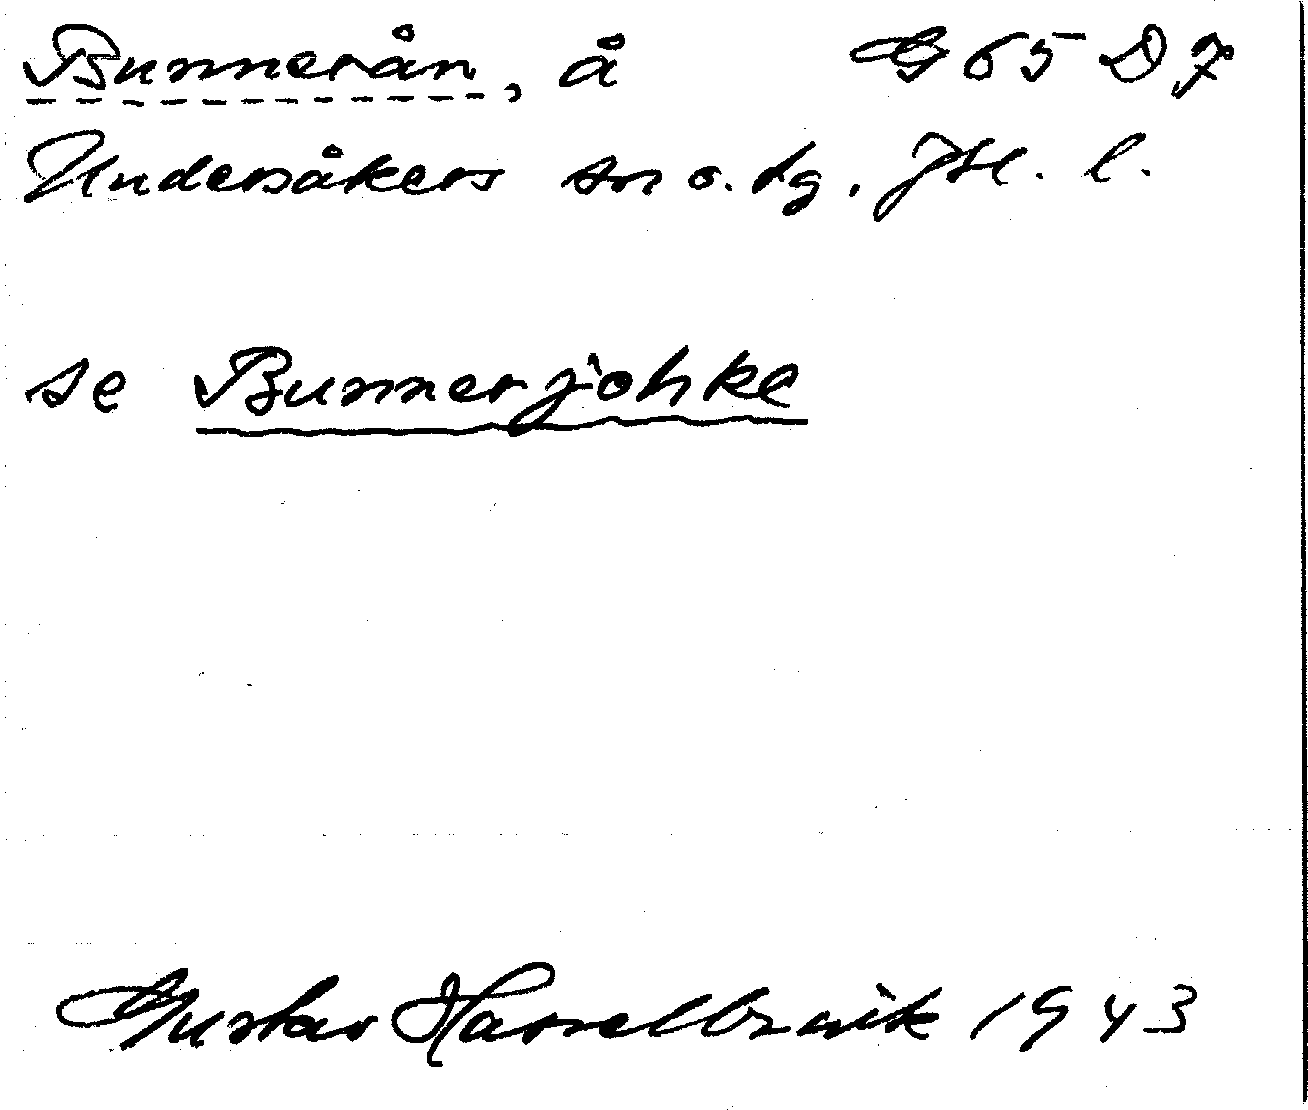 Bunnerån, å G 65 D 7
Undersåkers sn o. tg. Jtl. l.
se Bunnerjohke
Gustav Hasselbrink 1943